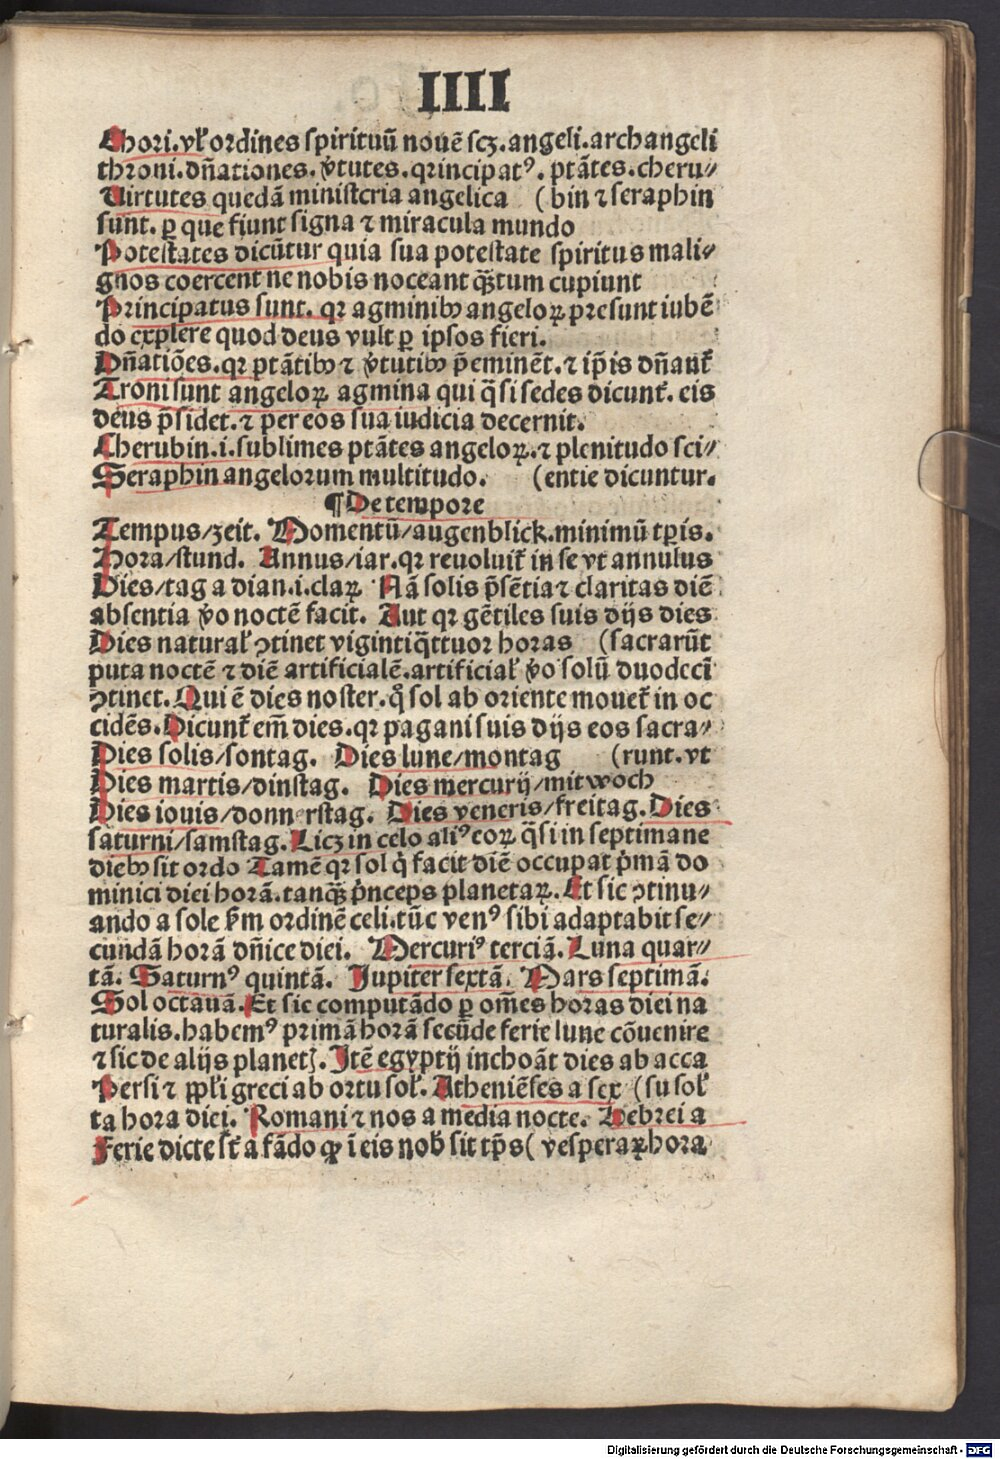 IIII
Chori.vł ordines spirituū nouē scꝫ.angeli.archangeli
throni.dn̄ationes.v̓tutes.qrincipatꝰ.ptātes.cheru⸗
Uirtutes quedā ministcria angelica (bin ⁊ seraphin
sunt.ꝑ que fiunt signa ⁊ miracula mundo
Potestates dicūtur quia sua potestate spiritus mali⸗
gnos coercent ne nobis noceant qȝ̄tum cupiunt
Principatus sunt. qꝛ agminibꝰ angeloꝝ presunt iubē
do explere quod deus vult ꝑ ipsos fieri.
Dn̄atiōes.qꝛ ptātibꝰ ⁊ v̓tutibꝰ p̄eminēt.⁊ ip̄is dn̄ant᷑
Troni sunt angeloꝝ agmina qui q̄si sedes dicunt᷑. eis
deus p̄sidet.⁊ per eos sua iudicia decernit.
Cherubin.i.sublimes ptātes angeloꝝ.⁊ plenitudo sci⸗
Seraphin angelorum multitudo. (entie dicuntur.
¶De tempore
Tempus/zeit. Momentū/augenblick.minimū tꝑis.
Hora/stund. Annus/iar.qꝛ reuoluit᷑ in se vt annulus
Dies/tag a dian.i.claꝝ. Nā solis p̄sētia ⁊ claritas diē
absentia v̓o noctē facit. Aut qꝛ gētiles suis dijs dies
Dies natural̓ ꝯtinet viginti q̄ttuor horas (sacrarūt
puta noctē ⁊ diē artificialē.artificial̓ v̓o solū duodecī
ꝯtinet. Qui ē dies noster.qͥ sol ab oriente mouet᷑ in oc
cidēs. Dicunt᷑ em̄ dies.qꝛ pagani suis dijs eos sacra⸗
Dies solis/sontag. Dies lune/montag (runt.vt
Dies martis/dinstag. Dies mercurij/mitwoch
Dies iouis/donnerstag. Dies veneris/freitag. Dies
saturni/samstag. Licꝫ in celo aliꝰ eoꝝ q̄si in septimane
diebꝰ sit ordo Tamē qꝛ sol qͥ facit diē occupat pͥmā do
minici diei horā.tanqȝ̄ pͥnceps planetaꝝ. Et sic ꝯtinu⸗
ando a sole ẜm ordinē celi.tūc venꝰ sibi adaptabit se⸗
cundā horā dn̄ice diei. Mercuriꝰ terciā. Luna quar⸗
tā. Saturnꝰ quintā. Jupiter sextā. Mars septimā.
Sol octauā. Et sic computādo ꝑ om̄es horas diei na
turalis.habemꝰ primā horā secūde ferie lune cōuenire
⁊ sic de alijs planetꝭ. Jtē egyptij inchoāt dies ab occa
Persi ⁊ ꝓpͥi greci ab ortu sol̓. Atheniēses a sex (su sol̓
ta hora diei. Romani ⁊ nos a media nocte. Hebrei a
Ferie dicte st̄ a fādo ꝙ ī eis nob̓ sit tp̄s (vespera hora
Digitalisierung gefördert durch die Deutsche Forschungsgemeinschaft - DFG